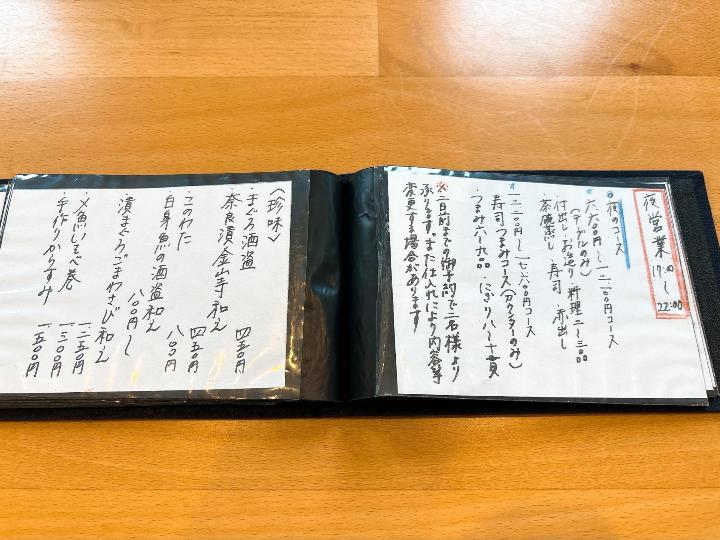 夜営業
17:00〜22:00
・夜のコース
六六〇〇円〜一二一〇〇円コース
(テーブルのみ)
付出し・お造り・料理二〜三品
茶碗蒸し・寿司・赤出し
一二一〇〇円〜一七六〇〇円コース
寿司つまみコース(カウンターのみ)
・つまみ六〜九品 にぎり八〜十貫
※二日前までの御予約で二名様より
承ります。また仕入れにより内容等
変更する場合があります
〈珍味〉
・まぐろ酒盗
奈良漬・金山寺和え 四五〇円
・このわた 四五〇円
・白身魚の酒盗和え 八〇〇円
漬まぐろごまわさび和え 八〇〇円〜
・〆魚しそ巻 一三〇〇円
・手作りからすみ 一五〇〇円